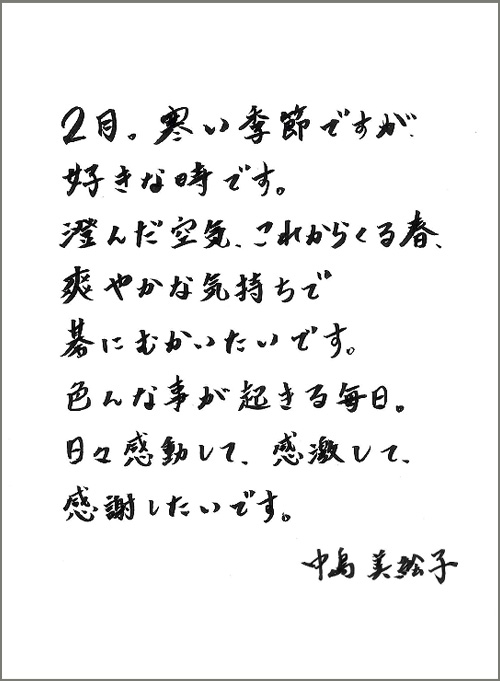 2月。寒い季節ですが、
好きな時です。
澄んだ空気、これからくる春、
爽やかな気持ちで
碁にむかいたいです。
色んな事が起きる毎日。
日々感動して、感激して、
感謝したいです。
中島美絵子